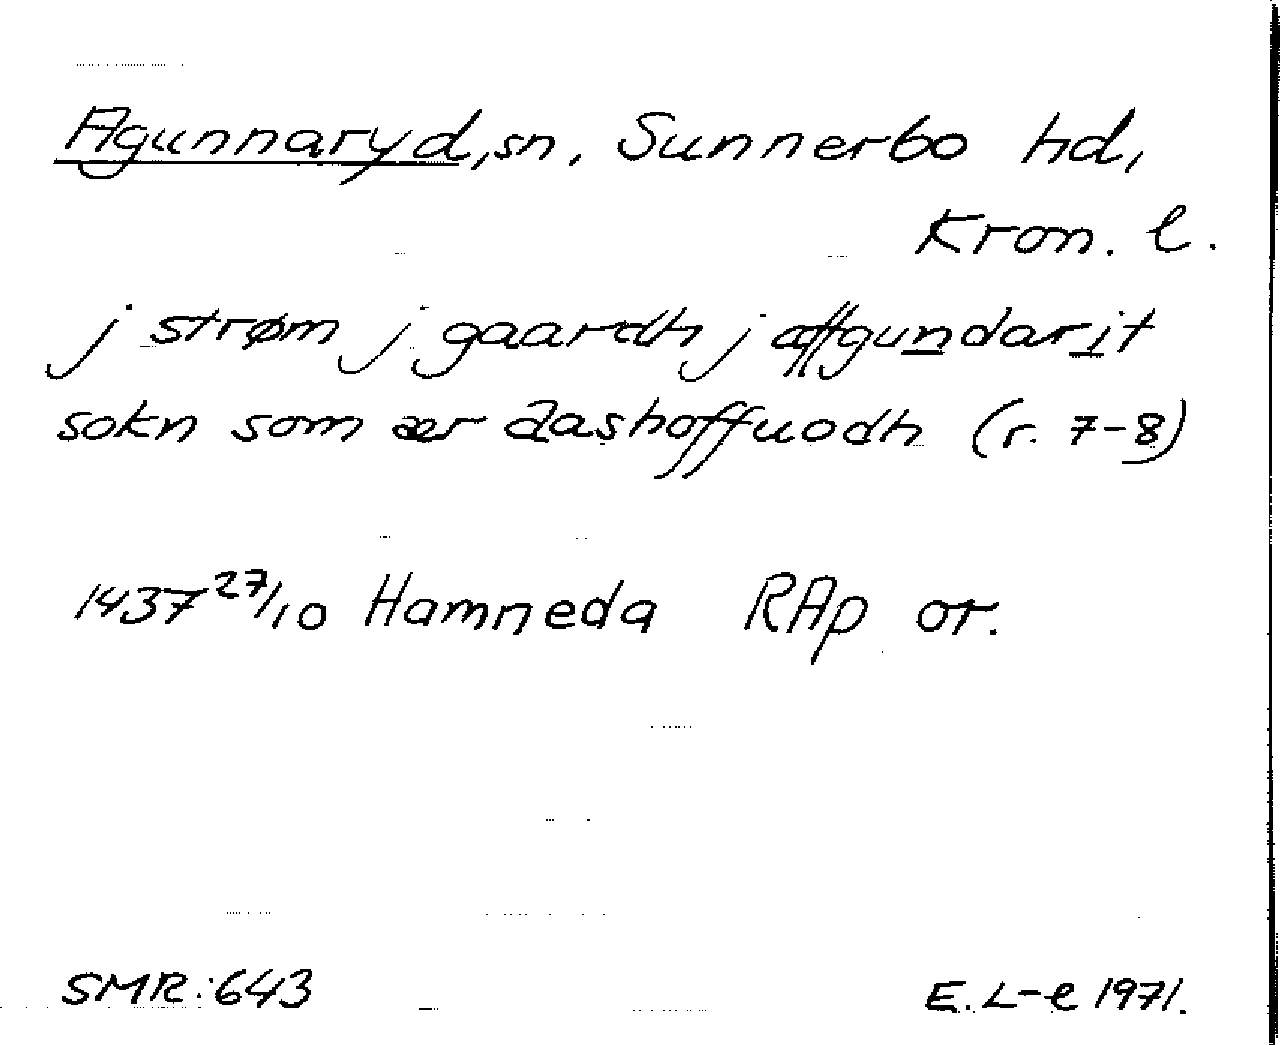 Agunnaryd, sn, Sunnerbo hd,
Kron. l.
j strøm j gaardh j affgundarit
sokn som ær aashoffuodh (r. 7-8)
1437 27/10 Hamneda RAp or.
SMR: 643
E. L-e 1971.